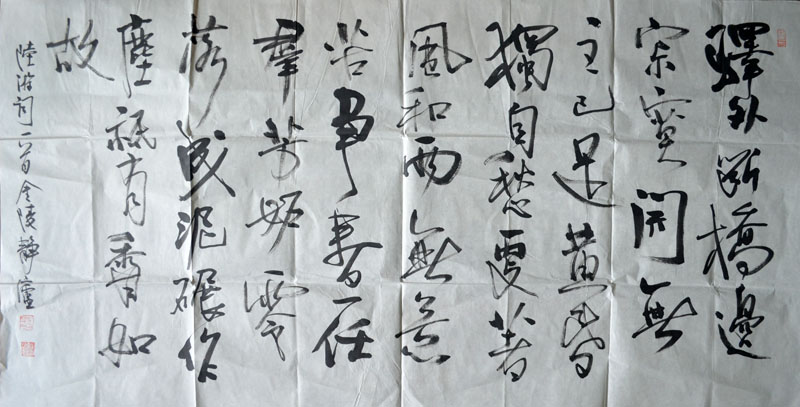 驛外斷橋邊
寂寞開無
主已是黃昏
獨自愁更著
風和雨無意
苦爭春一任
羣芳妒零
落成泥碾作
塵祇有香如
故
陸游詞一首金陵靜廬